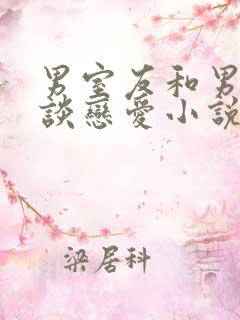 男室友和男
談戀愛小説
梁居科